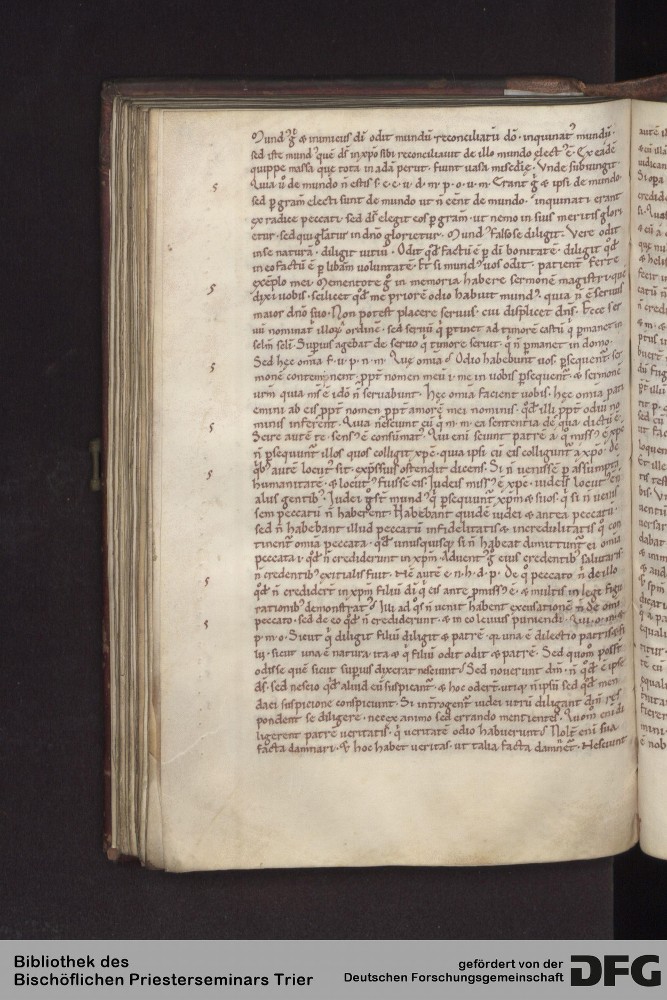 Mund' g̊ & inimicus dī odit mundū reconciliatū dō· inquinat' mundū·
sed iste mund' quē ds̄ in xp̄o sibi reconciliauit de illo mundo elect' ē· Ex eadē
quippe massa que tota in adā periit· fiunt uasa misc̄die· Vnde subiungit
Quia ů de mundo n̄ estis s· e· e· u· d· m· p· o· u· m· Erant g̊ & ipsi de mundo·
sed p gram̄ electi sunt de mundo ut n̄ eēnt de mundo· inquinati erant
ex radice peccati sed ds̄ elegit eos p gram̄· ut nemo in suis meritis glori
etur· sed qui gl̄atur in dn̄o glorietur· Mund' falso se diligit· Vere odit
in se naturā· diligit uitiū· Odit qd̄ factū ē p dī bonitatē· diligit qd̄
in eo factū ē p libām uoluntatē· Et si mund' uos odit· patient' ferte
exēplo mei· Mementote g̊ in memoria habere sermonē magistri· quē
dixi uobis· scilicet qd̄ me priorē odio habuit mund'· quia n̄ ē seruus
maior dn̄o suo· Non potest placere seruus· cui displicet dn̄s· Ecce ser
uū nominat' illoꝝ ordine· sed seruū q̇ ptinet ad timorē castū q̇ pmanet in
sclm̄ scli· Supius agebat de seruo q̇ timore seruit· q̇ n̄ pmanet in domo·
Sed hęc omia f· u· p· n· m· Quę omia· Odio habebunt uos· psequent'· ser
monē contempnent· ppt' nomen meū· i· me in uobis psequent'· & sermonē
urm̄ quia ms̄ ē idō n̄ seruabunt· Hęc omia facient uobis· hęc omia pati
emini ab eis ppt' nomen ppt' amorē mei nominis· qd̄ illi ppt' odiū no
minis inferent· Quia nesciunt eū q̇ m· m· ea sententia de qua dictū ē·
Scire autē te· sens' ē consūmat'· Qui eni sciunt patrē a q̇ miss' ē xp̄c
n̄ psequunt' illos quos colligit xp̄c· quia ipsi cū eis colligunt' a xp̄o· De
qb' autē locut' sit· exp̄ssius ostendit dicens· Si n̄ uenissē p assumptā
humanitatē· & locut' fuissē eis· Iudeis miss' ē xp̄c· iudeis locut' ē n̄
aliis gentib'· Iudei g̊ st' mund' q̇ psequunt' xp̄m & suos· q̇ si n̄ uenis
sem peccatū n̄ haberent· Habebant quidē iudei & antea peccatū·
sed n̄ habebant illud peccatū infidelitatis & incredulitatis q̇ con
tinent' omia peccata· qd̄ unusquisq; si n̄ habeat dimittunt' ei omia
peccata· i· qd̄ n̄ crediderunt in xp̄m· Aduent' g̊ eius credentib' salutaris·
n̄ credentib' exitialis fuit· Nē autē e· n· h· d· p· De q̇ peccato n̄ de illo
qd̄ n̄ crediderī in xp̄m filiū dī q̇ eis ante pmiss' ē· & multis in lege figu
rationib' demonstrat'· Illi ad qs̄ n̄ uenit habent excusationē n̄ de omi
peccato· sed de eo qd̄ n̄ crediderunt· & in eo leuius puniendi· Qui· o· m· &
p· m· o· Sicut q̇ diligit filiū diligit & patrē· qa una ē dilectio patris & fi
lii· sicut una ē natura· ita & q̇ filiū odit odit & patrē· Sed quom̄ poss̄t
odisse quē sicut supius dixerat nesciunt· Sed nouerunt dm̄· n̄ qd̄ ē ipse
ds̄· sed nescio qd̄ aliud eū suspicant'· & hoc oderī· utiq; n̄ ipsū sed qd̄ men
daci suspicione conspiciunt· Si introgent' iudei utrū diligant dm̄ res
pondent se diligere· nec ex animo sed errando mentientes· Quōm eni di
ligerent patrē ueritatis· q̇ ueritatē odio habuerunt· Nol̄t eni sua
facta damnari· & hoc habet ueritas· ut talia facta damnēt'· Nesciunt
Bibliothek des
Bischöflichen Priesterseminars Trier
gefördert von der
Deutschen Forschungsgemeinschaft
DFG